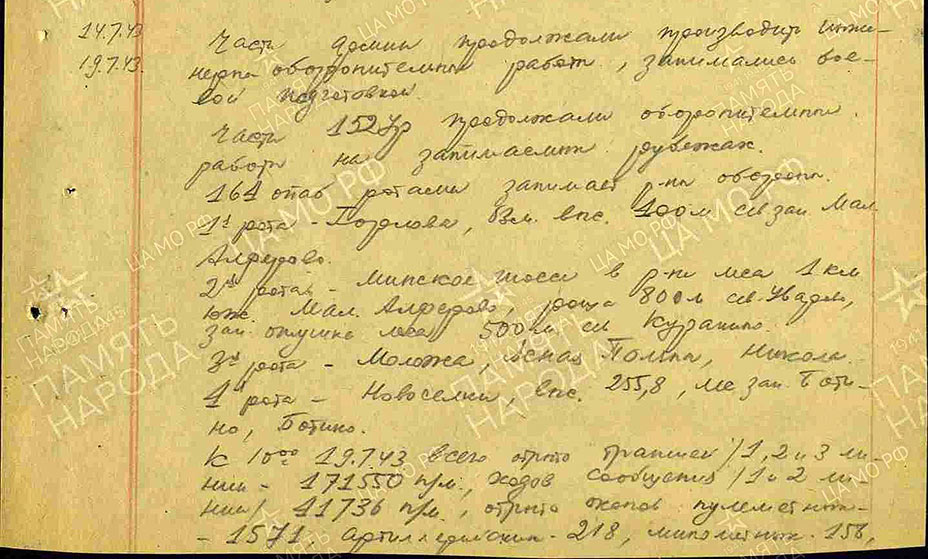 14.7.43
19.7.43.
Части армии продолжали производить инже-
нерно оборонительные работы, занимались бое-
вой подготовкой.
Части 152 Ур продолжали оборонительные
работы на занимаемых рубежах.
161 опаб ротами занимает р-ны обороны.
1я рота - Горлово, выс. 100 м св. зап. Мал.
Алферово.
2я рота - Минское шоссе в р-не леса 1 км
юж. Мал. Алферово, роща 800 м св. Уварово,
зап. опушка леса 500 м св.
3я рота - Моложа, Ясная Поляна, Никола.
рота - Новоселки, выс. 255,8, зап. Боти-
но, Ботино.
К 10 00 19.7.43 всего отрыто траншей /1, 2 и 3 ли-
нии - 171550 п/м., ходов сообщения /1 и 2 ли-
нии/ 41736 п/м., отрыто окопов пулеметных -
- 1571, артиллерийских - 218, минометных - 156,